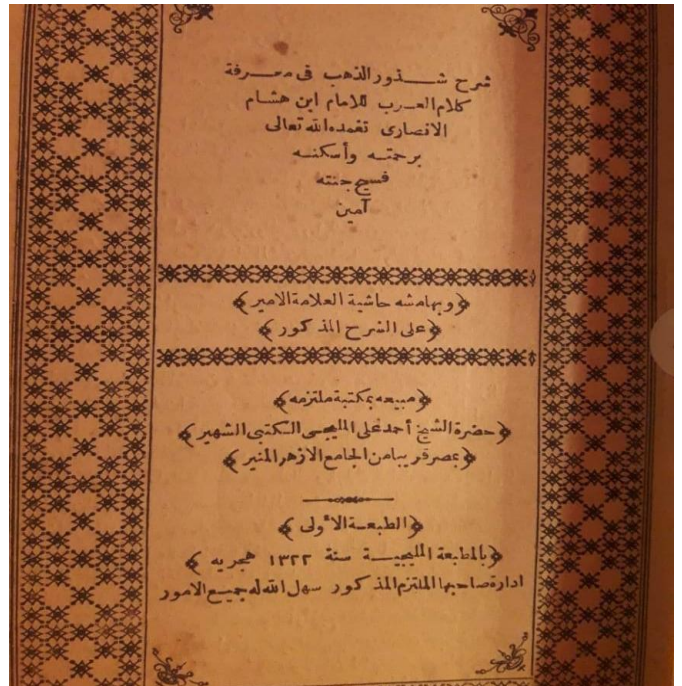 شرح شذور الذهب فى معرفة
كلام العرب للامام ابن هشام
الانصارى تغمده الله تعالى
برحمته وأسكنه
فسيح جنته
آمين
﴿وبهامشه حاشية العلامة الامير﴾
﴿على الشرح المذكور﴾
﴿مبيعه بمكتبة ملتزمه﴾
﴿حضرة الشيخ أحمد على المليجى الكتبى الشهير﴾
﴿بمصر قريبا من الجامع الازهر المنير﴾
﴿الطبعة الأولى﴾
﴿بالمطبعة المليجية سنة ١٣٢٢ هجريه﴾
ادارة صاحبها الملتزم المذكور سهل الله له جميع الامور